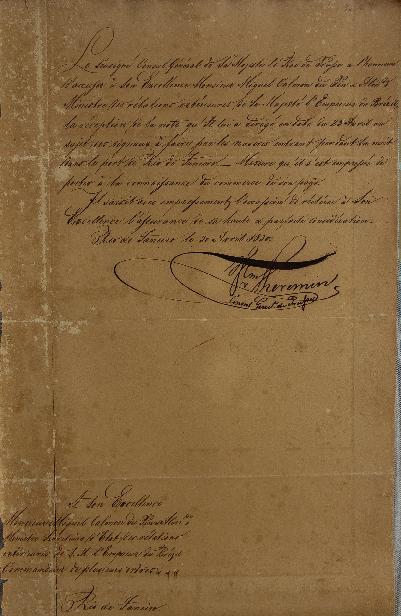 Le soussigné Consul Général de Sa Majesté le Roi de Prusse a l'honneur
d'accuser à Son Excellence Monsieur Miguel Calmon du Pin e Almeida
Ministre des relations extérieures de Sa Majesté l'Empereur du Brésil
la réception de la note qu'Elle lui a adressée en date du 23 Avril au
sujet des signaux à faire par les navires entrant pendant la nuit
dans le port de Rio de Janeiro. Mesure qu'il s'est empressé de
porter à la connaissance du commerce de son pays.
Il saisit avec empressement l'occasion de réitérer à Son
Excellence l'assurance de sa haute et parfaite considération.
Rio de Janeiro le 30 Avril 1830.
Wm Theremin
Consul Genl. de Prusse
A Son Excellence
Monsieur Miguel Calmon du Pin e Almda
Ministre Secrétaire d'Etat des relations
extérieures de S. M. l'Empereur du Brésil
Commandeur de plusieurs ordres
Rio de Janeiro